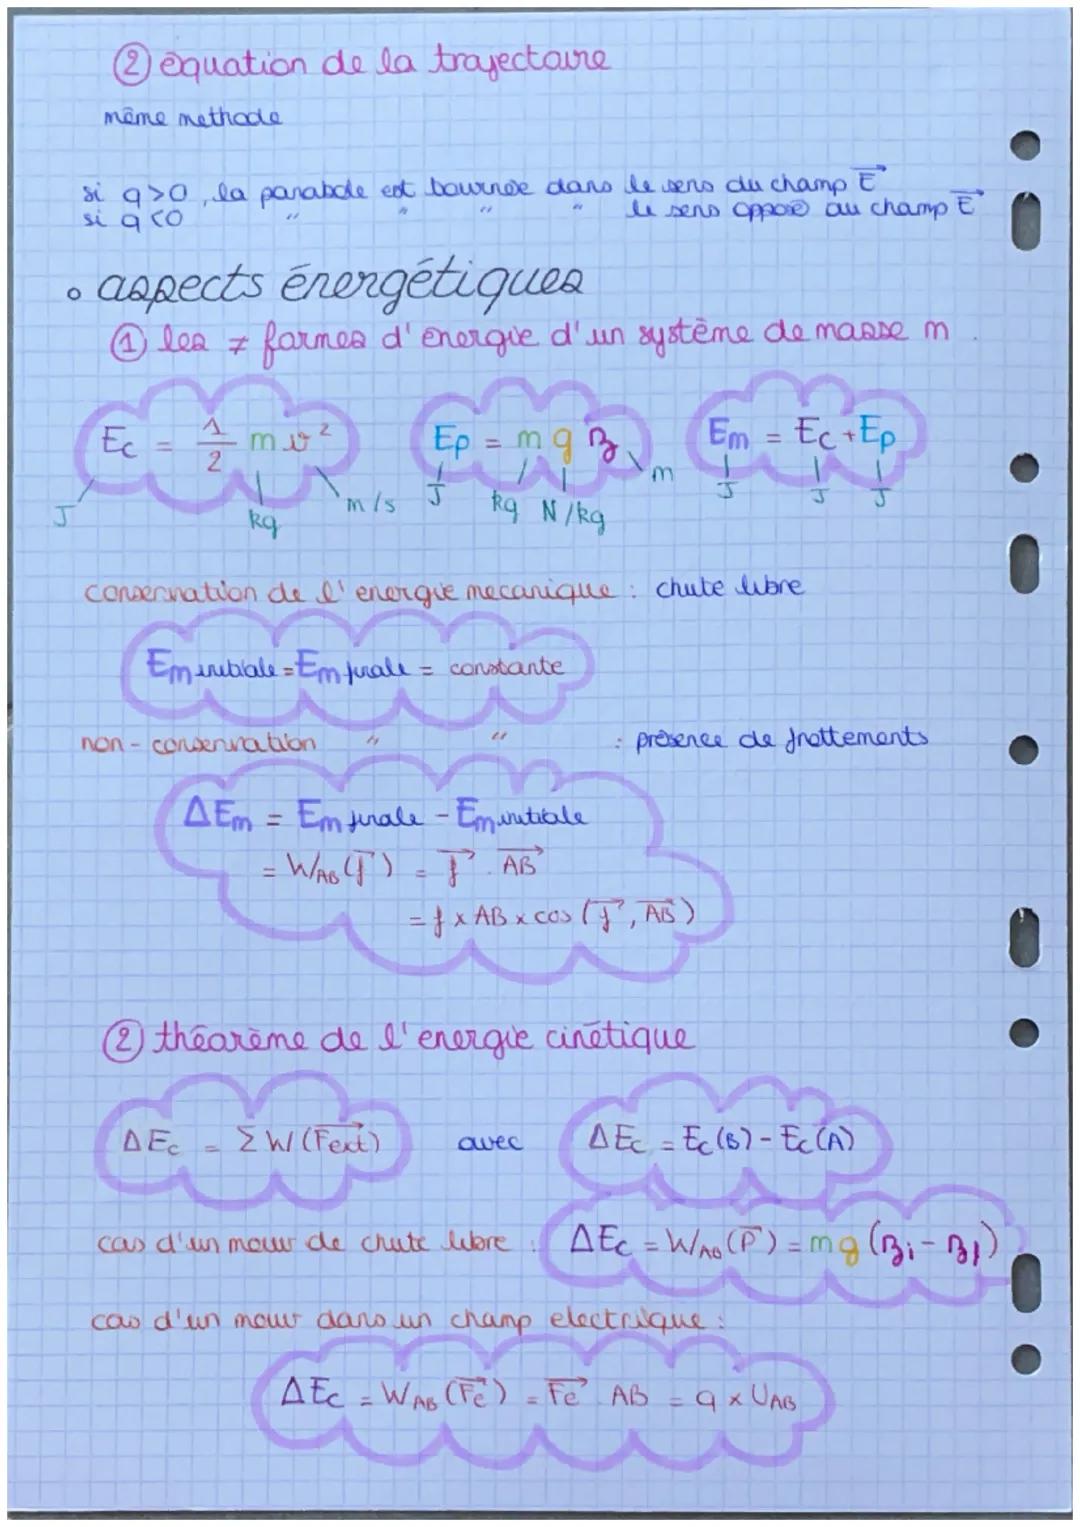 ② équation de la trajectoire
même methode
si q>0, la parabole est tournée dans le sens du champ E⃗
si q<0 " " " " le sens opposé au champ E⃗
• aspects énergétiques
① les ≠ formes d'énergie d'un système de masse m
Ec = 1/2 m v² Ep = m g z Em = Ec + Ep
J kg m/s J kg N/kg m J J J
conservation de l'energie mecanique : chute libre
Em initiale = Em finale = constante
non-conservation " " : présence de frottements
ΔEm = Em finale - Em initiale
= W_AB(f⃗) = f⃗ . AB⃗
= f x AB x cos (f⃗, AB⃗)
② théorème de l'energie cinétique
ΔEc = Σ W(Fext⃗) avec ΔEc = Ec(B) - Ec(A)
cas d'un mouv de chute libre : ΔEc = W_AB(P⃗) = mg(zi - zf)
cas d'un mouv dans un champ electrique :
ΔEc = W_AB(Fe⃗) = Fe⃗ . AB = q x U_AB